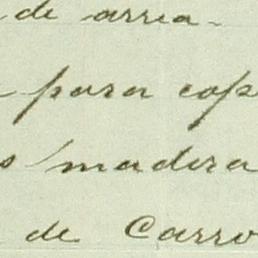 de arrea.
para cop
s madera
de Carro